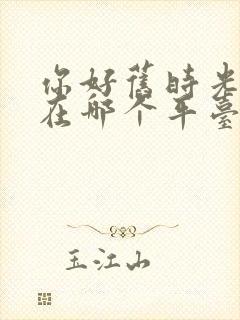 你好舊時光
在哪个平臺
玉江山